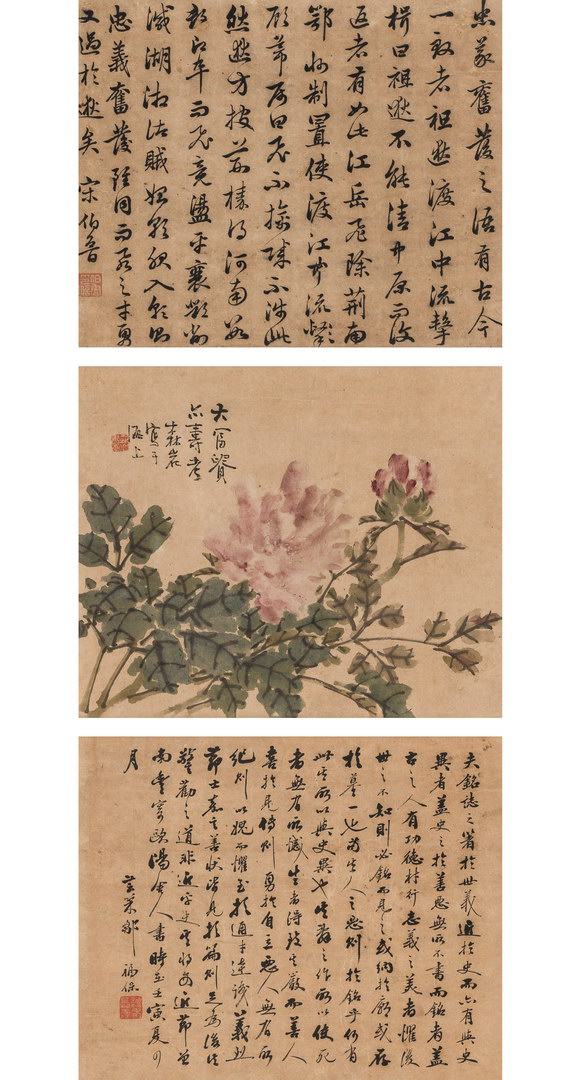 忠義奮發之語有古今
一致者祖逖渡江中流擊
楫曰祖逖不能清中原而復
返者有如此江岳飛除荊南
鄂州制置使渡江中流
顧幕属曰飛不擒賊不涉此
然逖方披荊棘得河南數
而飛竟盪平襄
減湖湘諸賊
忠義奮發雖同而飛之才勇
又過於逖矣 宋伯魯
大富貴
亦壽考
森岩
寫于
海上
夫銘誌之著於世義近於史而亦有與史
異者蓋史之於善惡無所不書而銘者蓋
古之人有功德材行志義之美者懼後
世之不知則必銘而見之或納於廟或存
於墓一也苟其人之惡則於銘乎何有
此其所以與史異也其辭之作所以使死
者無有所憾生者得致其嚴而善人
喜於見傳則勇於自立惡人無有所
紀則以愧而懼至於通才達識義烈
節士嘉言善狀皆見於篇則足為後法
警勸之道非近乎史其將安近節曾
南豐寄歐陽舍人書時在壬寅夏四
月
福保